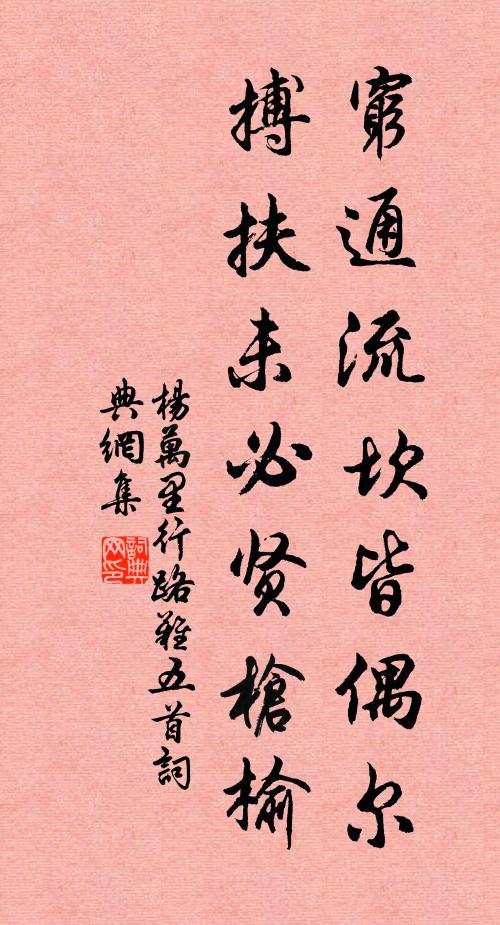 窮通流坎皆偶尔
搏扶未必贤槍榆
楊萬里行路難五首詞
典網集
詞典
网印